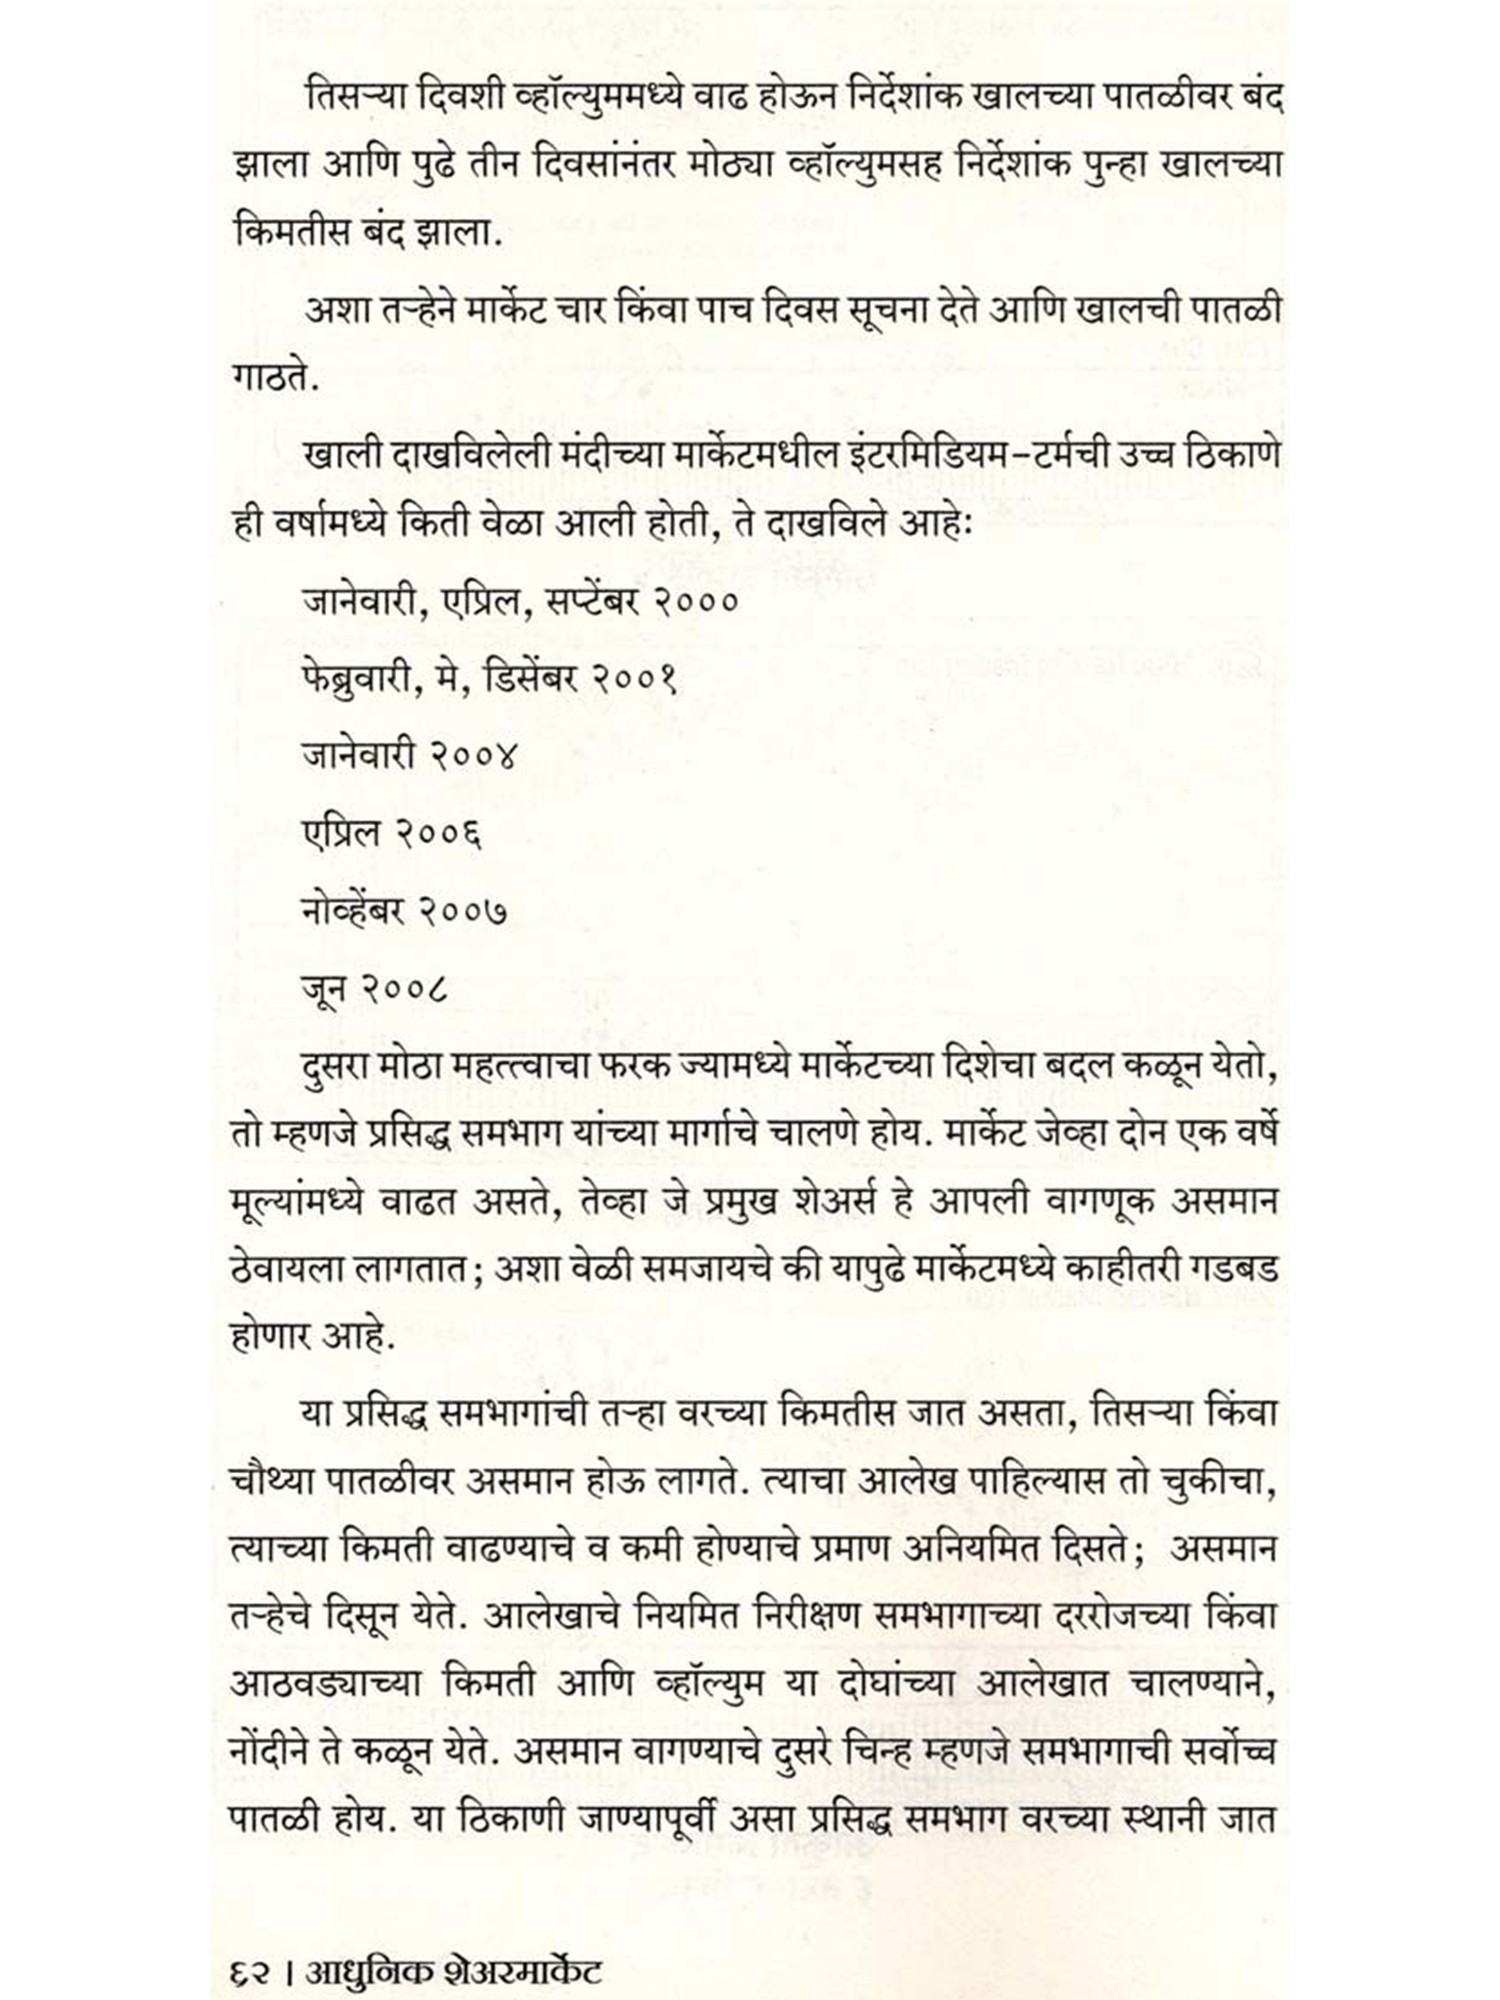 तिसऱ्या दिवशी व्हॉल्युममध्ये वाढ होऊन निर्देशांक खालच्या पातळीवर बंद
झाला आणि पुढे तीन दिवसांनंतर मोठ्या व्हॉल्युमसह निर्देशांक पुन्हा खालच्या
किमतीस बंद झाला.
अशा तऱ्हेने मार्केट चार किंवा पाच दिवस सूचना देते आणि खालची पातळी
गाठते.
खाली दाखविलेली मंदीच्या मार्केटमधील इंटरमिडियम-टर्मची उच्च ठिकाणे
ही वर्षामध्ये किती वेळा आली होती, ते दाखविले आहेः
जानेवारी, एप्रिल, सप्टेंबर २०००
फेब्रुवारी, मे, डिसेंबर २००१
जानेवारी २००४
एप्रिल २००६
नोव्हेंबर २००७
जून २००८
दुसरा मोठा महत्त्वाचा फरक ज्यामध्ये मार्केटच्या दिशेचा बदल कळून येतो,
तो म्हणजे प्रसिद्ध समभाग यांच्या मार्गाचे चालणे होय. मार्केट जेव्हा दोन एक वर्षे
मूल्यांमध्ये वाढत असते, तेव्हा जे प्रमुख शेअर्स हे आपली वागणूक असमान
ठेवायला लागतात; अशा वेळी समजायचे की यापुढे मार्केटमध्ये काहीतरी गडबड
होणार आहे.
या प्रसिद्ध समभागांची तऱ्हा वरच्या किमतीस जात असता, तिसऱ्या किंवा
चौथ्या पातळीवर असमान होऊ लागते. त्याचा आलेख पाहिल्यास तो चुकीचा,
त्याच्या किमती वाढण्याचे व कमी होण्याचे प्रमाण अनियमित दिसते; असमान
तऱ्हेचे दिसून येते. आलेखाचे नियमित निरीक्षण समभागाच्या दररोजच्या किंवा
आठवड्याच्या किमती आणि व्हॉल्युम या दोघांच्या आलेखात चालण्याने,
नोंदीने ते कळून येते. असमान वागण्याचे दुसरे चिन्ह म्हणजे समभागाची सर्वोच्च
पातळी होय. या ठिकाणी जाण्यापूर्वी असा प्रसिद्ध समभाग वरच्या स्थानी जात
६२ । आधुनिक शेअरमार्केट